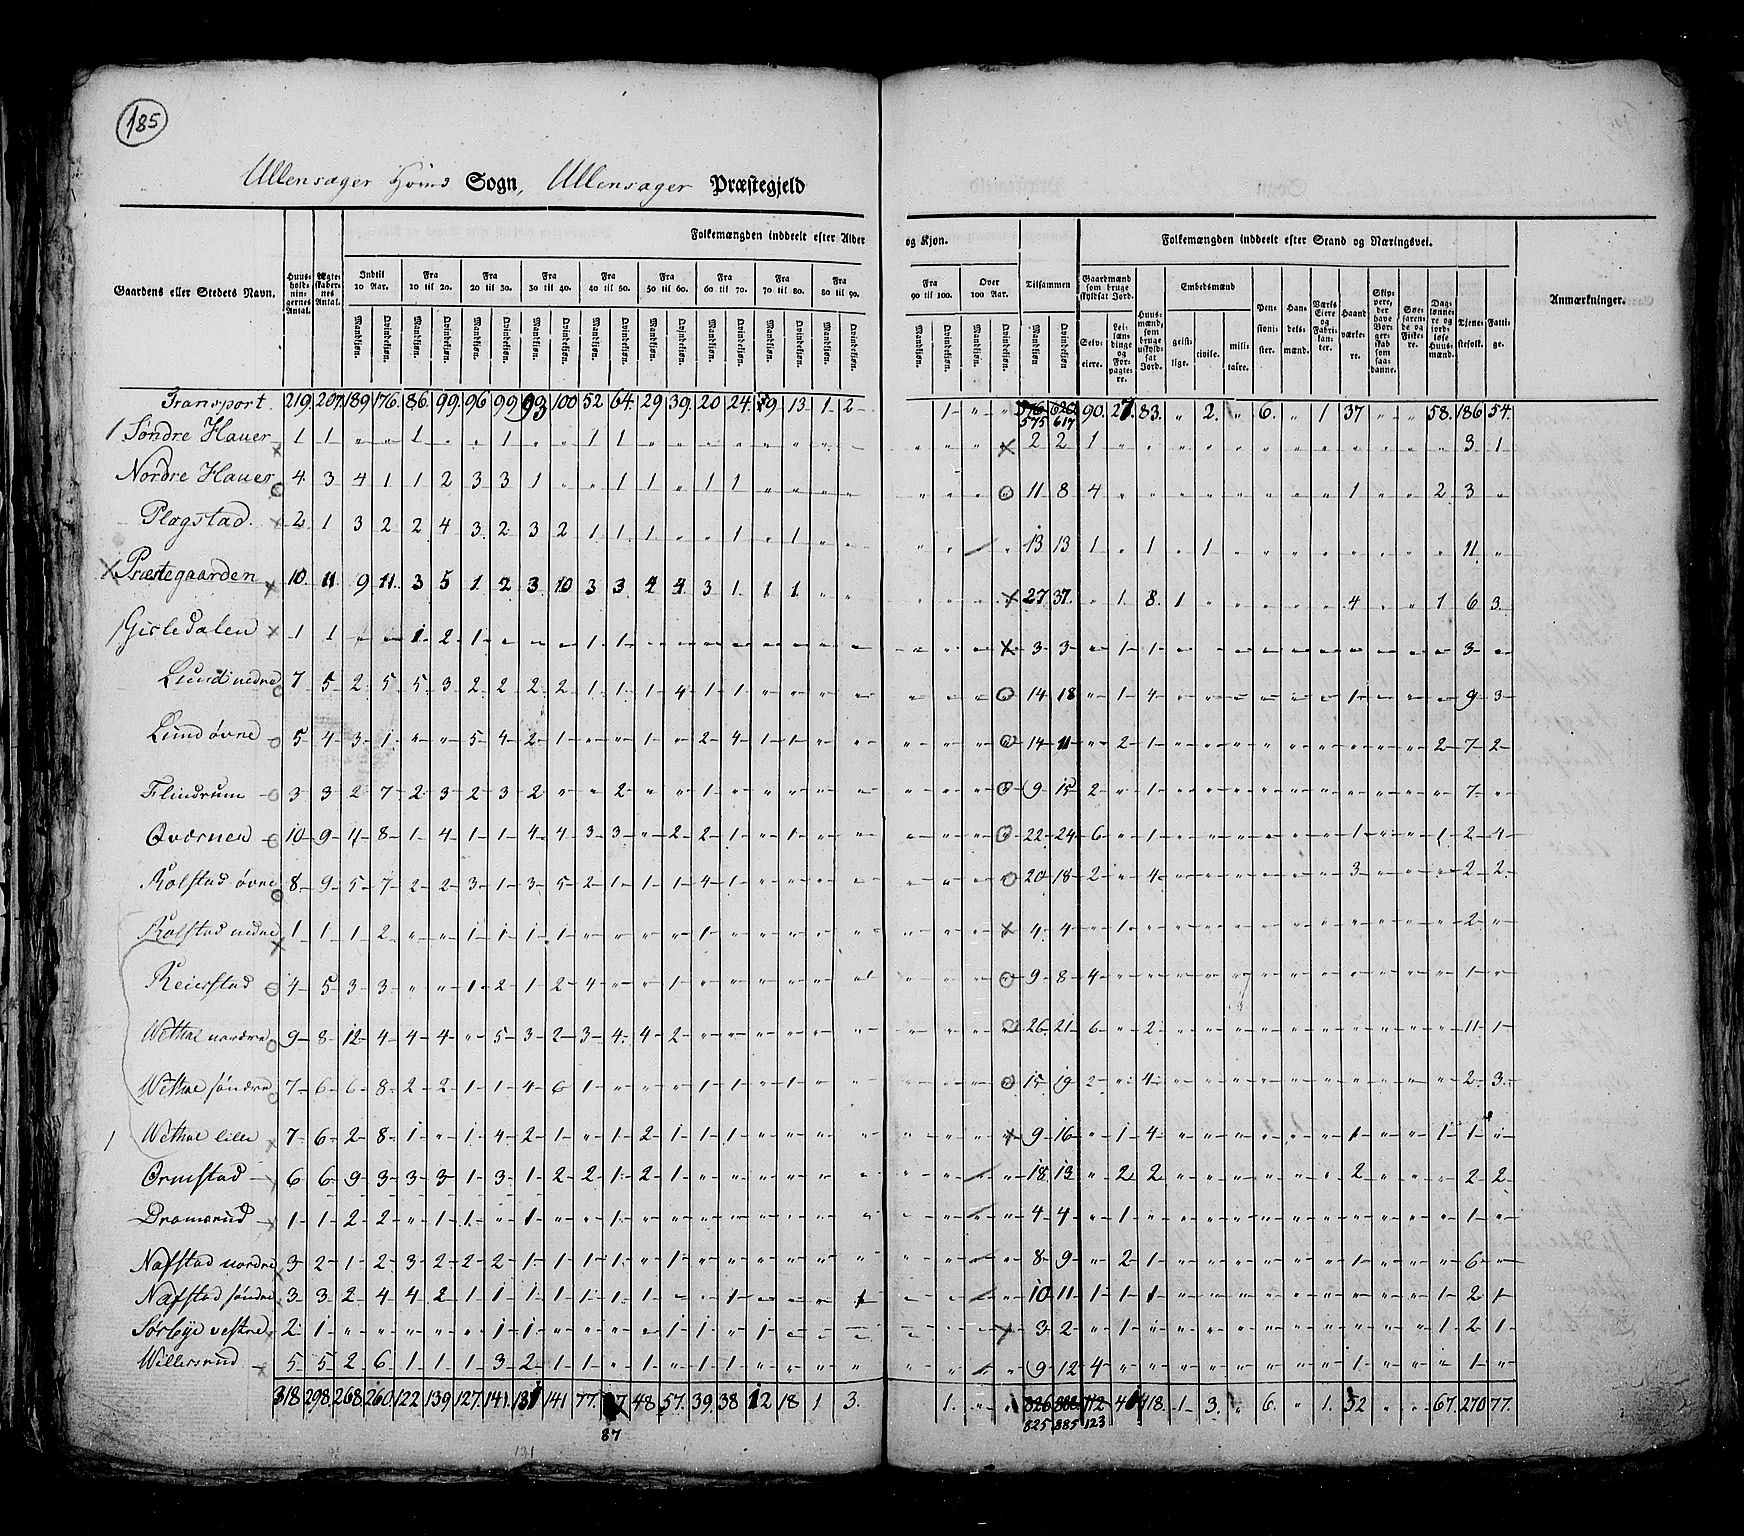 185
Ullensager Hoved Sogn, Ullensager Præstegjeld
Folkemængden inddeelt efter Alder og Kjøn. Folkemængden inddeelt efter Stand og Næringsvei.
Gaardens eller Stedets Navn. Huusholdningernes Antal. Ægteskabernes Antal. Indtil 10 Aar. Fra 10 til 20. Fra 20 til 30. Fra 30 til 40. Fra 40 til 50. Fra 50 til 60. Fra 60 til 70. Fra 70 til 80. Fra 80 til 90. Fra 90 til 100. Over 100 Aar. Tilsammen Gaardmænd som bruge skyldsat Jord. Huusmænd, som bruge uskyldsat Jord. Embedsmænd Pensionister. Handelsmænd. Værks Eiere og Fabrikanter. Haandværkere. Skippere, der have Borgerskab som saadanne. Søefarende og Fiskere. Dagslønnere og jordløse Huusmænd. Tjenestefolk. Fattige. Anmærkninger.
Mandkjøn. Qvindekjøn. Mandkjøn. Qvindekjøn. Mandkjøn. Qvindekjøn. Mandkjøn. Qvindekjøn. Mandkjøn. Qvindekjøn. Mandkjøn. Qvindekjøn. Mandkjøn. Qvindekjøn. Mandkjøn. Qvindekjøn. Mandkjøn. Qvindekjøn. Mandkjøn. Qvindekjøn. Mandkjøn. Qvindekjøn. Mandkjøn Qvindekjøn Selveiere. Leilændinge og Forpagtere. geistlige. civile. militaire.
Transport. 219. 207. 189. 176. 86. 99. 96. 99. 93 100 52 64. 29 39. 20 24. 13. 1. 2 1 " " 575 617 90. 27. 83. " 2. " 6. " 1 37 " " 58. 186 54.
Søndre Hauer 1 1 " " 1 " " 1 " " 1 1 " " " " " " " " " " " 2 2 1 " " " " " " " " " " " " 3 1
Nordre Hauer 4 3 4 1 1 2 3 3 1 " " 1 1 " 1 1 " " " " " " " " 11 8 4 " " " " " " " " 1 " " 2 3 "
Plogstad. 2 1 3 2 2 4 3 2 3 2 1 1 1 " " 1 " 1 " " " " " 13 13 1 " 1 " 1 " " " " " " " " 11 "
Præstegaarden 10. 11 9 11. 3 5 1 2 3 10 3 3 4 4 3 1. 1 1 " " " " " 27 37. " 1. 8. 1 " " " " " 4 " " 1 6 3.
Gisledalen 1 1 " " 1 2 1 " " " 1 1 " " " " " " " " " " " 3 3 " 1 1 " " " " " " " " " " 3 "
Lund nedre 7 5 2 5 5 3 2 2 2 2 1 1 1 4 1 1 " " " " " " " " 14 18 " 1 4 " " " " " " 1 " " " 9 3
Lund øvre 5 4 3 1 " " 5 4 2 1 " " 1 " 2 4 1 1 " " " " " " 14 11 " 2 1 " " " " " " " " " 2 7 2
Flindrum 3 3 2 7 2 3 2 3 2 " " 2 " " 1 " " " " " " " " " 9 15 2 " 1 " " " " " " " " " " 7 "
Qværnen 10 9 11 8 1 4 1 1 4 4 3 3 " 2 2 1 " 1 " " " " " " 22 24 6 " 1 " " " " " " 1 " " 1 2 4
Kolstad øvre 8 9 5 7 2 2 3 1 3 5 2 1 1 1 4 1 " " " " " " " " 20 18 2 " 4 " " " " " " 3 " " " 2 2
Kolstad nedre 1 1 1 2 " " 1 1 1 1 " " " " 1 " " " " " " " " " 4 4 " 1 " " " " " " " " " " " 2 "
Reierstad 4 5 3 3 " " 1 2 1 2 4 " " 1 " " " " " " " " " 9 8 4 " " " " " " " " " " " " 1 "
Wethal nordre 9 8 12 4 4 4 " 5 3 2 3 4 4 2 " " " " " " " " " " 26 21 6 " 2 " " " " " " " " " " 11 1
Wethal søndre 7 6 6 8 2 2 1 1 4 6 1 " " " 1 1 " 1 " " " " " " 15 19 2 " 4 " " " " " " " " " " 2 3
1 Wethal lille 7 6 2 8 1 " 1 4 2 1 " 1 2 1 1 1 " " " " " " " 9 16 " 1 4 " " " " " " 1 " " 1 1 "
Ormstad 6 6 9 3 3 3 1 3 1 2 2 1 2 1 " " " " " " " " " 18 13 " 2 2 " " " " " " 2 " " " 2 2
Dramsrud 1 1 2 2 " 1 1 " 1 " " 1 " " " " " " " " " " " 4 4 " 1 " " " " " " " " " " " 1 "
Nafstad nordre 3 2 1 2 3 2 2 2 1 1 1 1 " 1 " " " " " " " " " 8 9 " 2 1 " " " " " " 1 " " 1 6 "
Nafstad søndre 3 3 2 4 4 2 1 1 1 1 1 1 1 " " 1 " " " 1 " " " 10 11 1 1 1 " " " " " " " " " 1 2 1
Sørbye vestre 2 1 " " " " " 1 1 " " " " 1 1 " 1 " " " " " " 3 2 " 1 " " " " " " " " " " 1 2 1
Willersrud 5 5 2 6 1 1 1 3 2 1 1 " 1 " 1 1 " " " " " " " 9 12 4 " " " " " " " " 1 " " " 1 "
318 298. 268. 260. 122 139 127. 141. 131 141 77. 87 48 57. 39. 38 12 18 1 3. 1. " " 825 885 123 41 118. 1 3. " 6. " 1. 52 " " 67. 270 77.
131